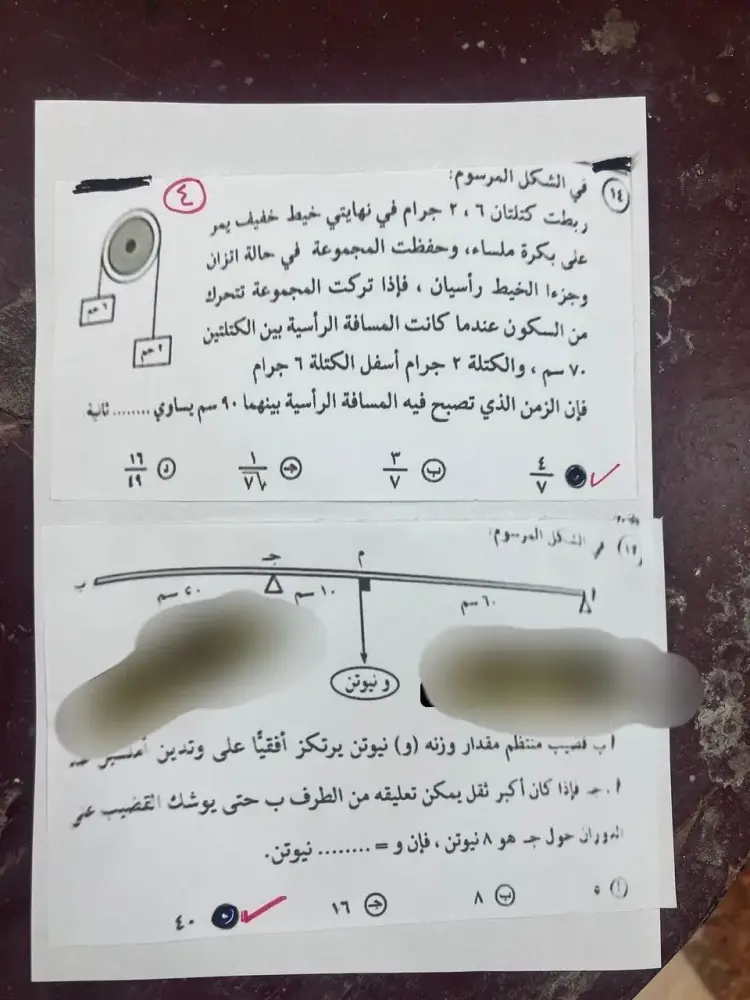 ١٤
في الشكل المرسوم:
٤
ربطت كتلتان ٦ ، ٢ جرام في نهايتي خيط خفيف يمر
على بكرة ملساء، وحفظت المجموعة في حالة اتزان
وجزءا الخيط رأسيان ، فإذا تركت المجموعة تتحرك
من السكون عندما كانت المسافة الرأسية بين الكتلتين
٧٠ سم ، والكتلة ٢ جرام أسفل الكتلة ٦ جرام
فإن الزمن الذي تصبح فيه المسافة الرأسية بينهما ٩٠ سم يساوي ........ ثانية
٦ جم
٢ جم
٤/٧
ب ٣/٧
ج
د ١٦/٤٩
في الشكل المرسوم:
ب
جـ
م
أ
٤٠ سم
١٠ سم
٦٠ سم
و نيوتن
أب قضيب منتظم مقدار وزنه (و) نيوتن يرتكز أفقيًّا على وتدين
أ ، جـ فإذا كان أكبر ثقل يمكن تعليقه من الطرف ب حتى يوشك القضيب على
الدوران حول جـ هو ٨ نيوتن ، فإن و = ........ نيوتن.
أ ٥
ب ٨
ج ١٦
د ٤٠